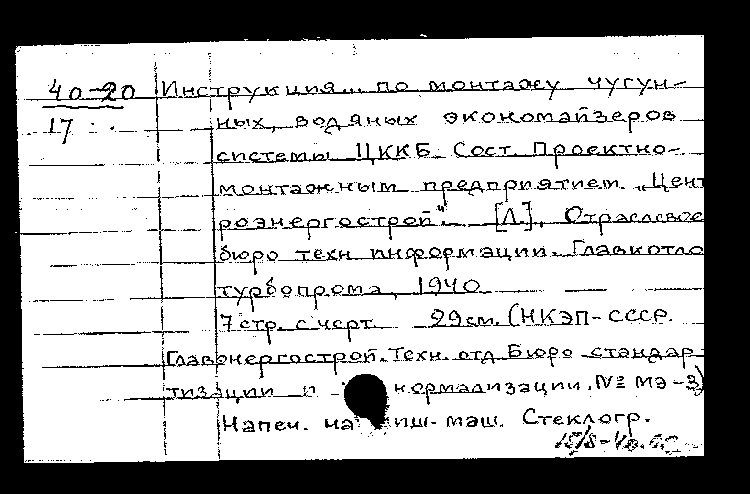 40-20 Инструкция... по монтажу чугун-
17 ных, водяных экономайзеров
системы ЦККБ. Сост. Проектно-
монтажным предприятием „Цент
роэнергострой". [Л.], Отраслевое
бюро техн информации. Главкотло
турбопрома, 1940
7 стр. с черт. 29 см. (НКЭП-СССР.
Главэнергострой. Техн. отд. Бюро стандар
тизации и нормализации. № МЭ-3)
Напеч. на пиш. маш. Стеклогр.